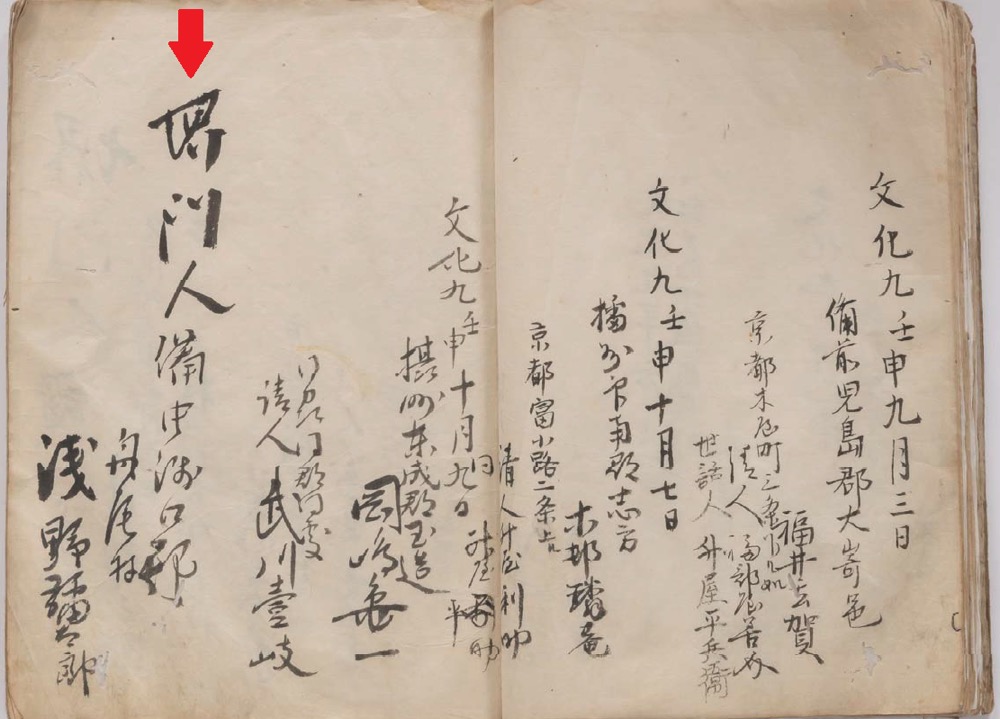 文化九壬申九月三日
備前児島郡大嵜邑
福井玄賀
京都木屋町三条下ル
請人
世話人 升屋平兵衛
文化九壬申十月七日
播州印南郡志方
木邨璘庵
京都富小路二条上
請人升屋利助
同 升屋
文化九壬申十月九日
摂州東成郡玉造
岡嶋 一
同州同郡同處
請人 武川壹岐
堺門人 備中浅口郡
舟尾村
浅野 太郎